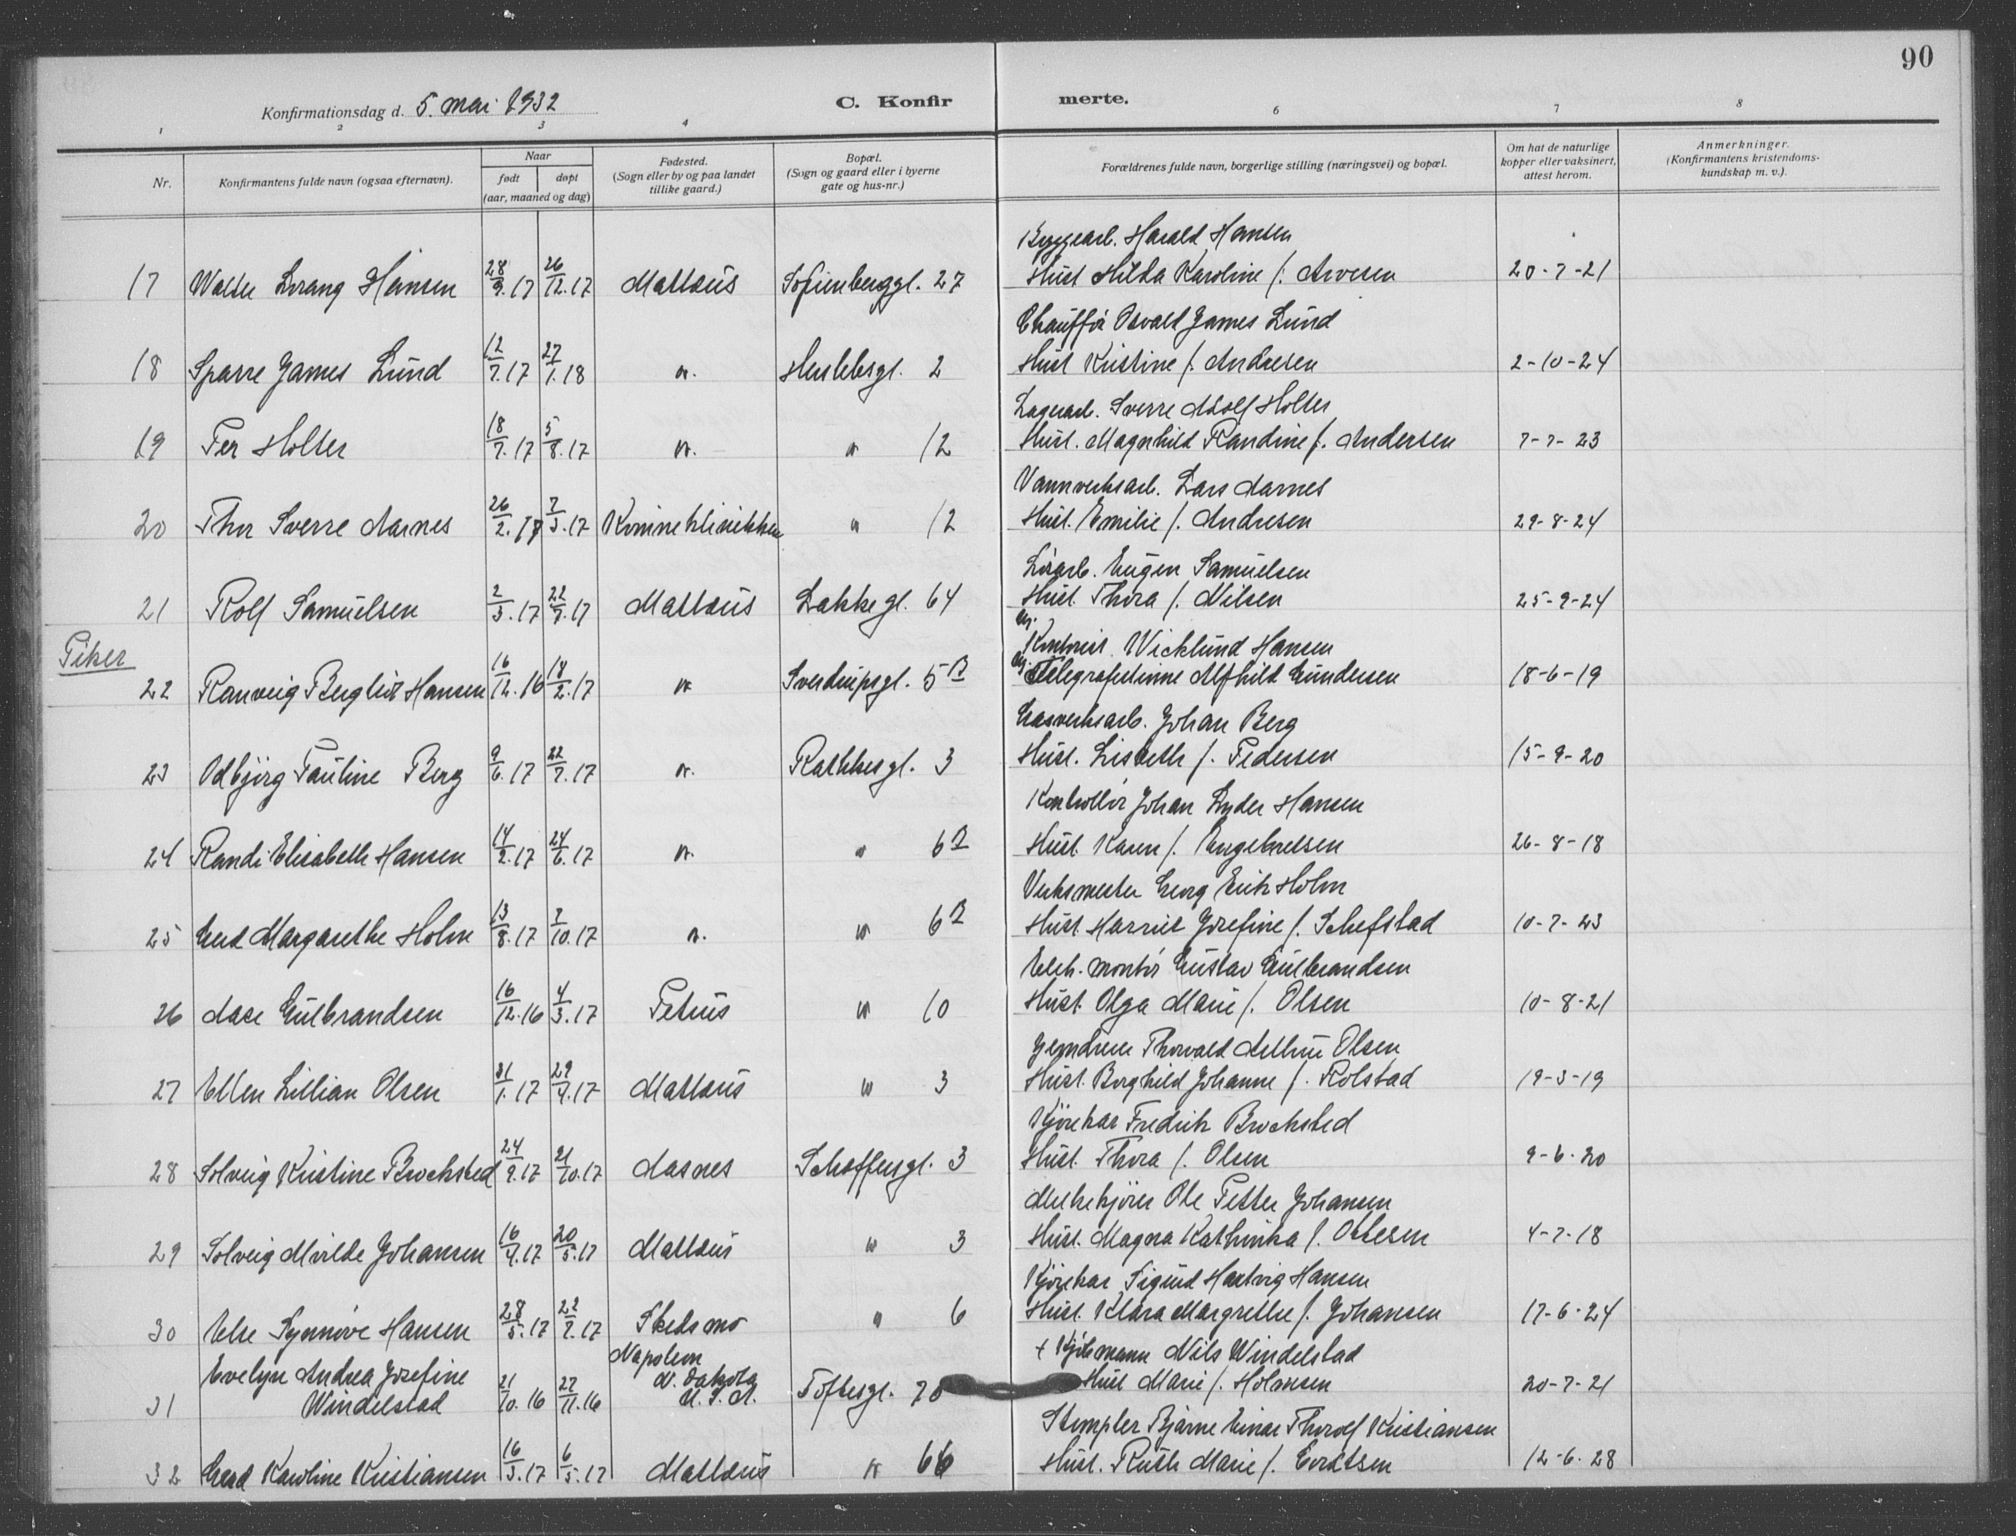 90
Konfirmationsdag d. 5. mai 1932
C. Konfir merte.
1 2 3 4 6 7 8
Nr.
Konfirmantens fulde navn (ogsaa efternavn).
Naar
født døpt
(aar, maaned og dag)
Fødested.
(Sogn eller by og paa landet
tillike gaard.)
Bopæl.
(Sogn og gaard eller i byerne
gate og hus-nr.)
Forældrenes fulde navn, borgerlige stilling (næringsvei) og bopæl.
Om hat de naturlige
kopper eller vaksinert,
attest herom.
Anmerkninger.
(Konfirmantens kristendoms-
kundskap m. v.).
Byggearb. Harald Hansen
17 Walter Lorang Hansen 28/9.17 26/12.17 Mattæus Sofienberggt. 27 Hust Hilda Karoline f. Arvesen 20-7-21
Chauffør Osvald James Lund
18 Sparre James Lund 12/7.17 27/1.18 " Heslebsgt. 2 Hust Kristine f. Andresen 2-10-24
Lagerarb. Sverre Adolf Holter
19 Per Holter 18/7.17 5/8.17 " " 12 Hust. Magnhild Randine f. Andersen 7-7-23
Vannverksarb. Lars Aarnes
20 Thor Sverre Aarnes 26/2.17 7/3.17 Kvinneklinikken " 12 Hust. Emilie f. Andresen 29-8-24
Løsarb. Eugen Samuelsen
21 Rolf Samuelsen 2/3.17 22/7.17 Mattæus Lakkegt. 64 Hust. Thora f. Nilsen 25-9-24
Piker
Ug. Kontorist Wicklund Hansen
22 Ranveig Bergliot Hansen 16/12.16 18/2.17 " Sverdrupsgt. 5B Ug. Telegrafistinne Alfhild Gundersen 18-6-19
Gasverksarb. Johan Berg
23 Odbjørg Pauline Berg 9/6.17 22/7.17 " Rathkesgt. 3 Hust. Lisbeth f. Pedersen 15-9-20
Kontrollør Johan Lyder Hansen
24 Randi Elisabeth Hansen 14/2.17 24/6.17 " " 6B Hust Karen f. Engebretsen 26-8-18
Verksmester Georg Erik Holm
25 Gerd Margarethe Holm 13/8.17 7/10.17 " " 6B Hust Harriet Josefine f. Schefstad 10-7-23
Elek. montør Gustav Gulbrandsen
26 Aase Gulbrandsen 16/12.16 4/3.17 Petrus " 10 Hust. Olga Marie f. Olsen 10-8-21
Jerndreier Thorvald Arthur Olsen
27 Ellen Lillian Olsen 31/1.17 29/4.17 Mattæus " 3 Hust. Borghild Johanne f. Rolstad 19-3-19
Kjørekar Fredrik Brocksted
28 Solveig Kristine Brocksted 24/9.17 21/10.17 Aasnes Schaffersgt. 3 Hust. Thora f. Olsen 9-6-20
Melkekjører Ole Petter Johansen
29 Solveig Milde Johansen 16/4.17 20/5.17 Mattæus " 3 Hust. Magna Kathinka f. Ottesen 4-7-18
Kjørekar Sigurd Hartvig Hansen
30 Else Synnøve Hansen 28/5.17 22/7.17 Skedsmo " 6 Hust. Klara Margrethe f. Johansen 17-6-24
Evelyn Andrea Josefine Napoleon N. Dakota U.S.A. + Kjøbmann Nils Windelstad
31 Windelstad 21/10.16 27/11.16 Toftesgt. 70 Hust Marie f. Holmsen 20-7-21
Stempler Bjarne Einar Thorolf Kristiansen
32 Gerd Karoline Kristiansen 16/3.17 6/5.17 Mattæus " 66 Hust. Ruth Marie f. Evertsen 12-6-28